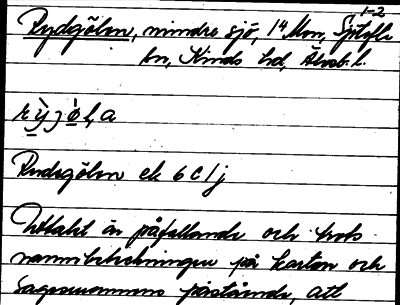 1-2
Rydgölen, mindre sjö, 14 Mon, Sjötofta
sn, Kinds hd, Älvsb. l.
Rydsgölen ek 6 c 1 j
Uttalet är påfallande och trots
namnbeteckningen på kartan och
sagesmannens påstående, att